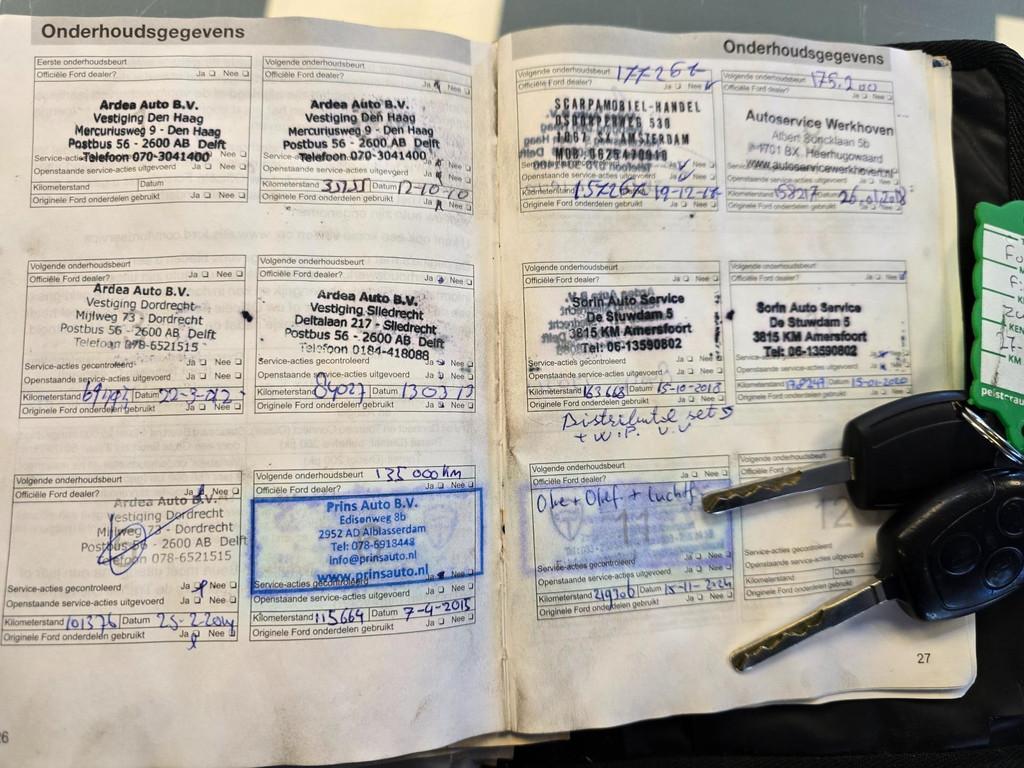 Onderhoudsgegevens
Eerste onderhoudsbeurt
Officiële Ford dealer? Ja Nee
Ardea Auto B.V.
Vestiging Den Haag
Mercuriusweg 9 - Den Haag
Postbus 56 - 2600 AB Delft
Telefoon 070-3041400
Openstaande service-acties uitgevoerd Ja Nee
Kilometerstand Datum
Originele Ford onderdelen gebruikt Ja Nee
Volgende onderhoudsbeurt
Officiële Ford dealer?
Ja Nee
Ardea Auto B.V.
Vestiging Den Haag
Mercuriusweg 9 - Den Haag
Postbus 56 - 2600 AB Delft
Telefoon 070-3041400
Openstaande service-acties uitgevoerd Ja Nee
Kilometerstand Datum 12-10-10
Originele Ford onderdelen gebruikt Ja Nee
Volgende onderhoudsbeurt
Officiële Ford dealer? Ja Nee
Ardea Auto B.V.
Vestiging Dordrecht
Mijlweg 73 - Dordrecht
Postbus 56 - 2600 AB Delft
Telefoon 078-6521515
Service-acties gecontroleerd Ja Nee
Openstaande service-acties uitgevoerd Ja Nee
Kilometerstand Datum 22-3-2012
Originele Ford onderdelen gebruikt Ja Nee
Volgende onderhoudsbeurt
Officiële Ford dealer? Ja Nee
Ardea Auto B.V.
Vestiging Sliedrecht
Deltalaan 217 - Sliedrecht
Postbus 56 - 2600 AB Delft
Telefoon 0184-418088
Service-acties gecontroleerd Ja Nee
Openstaande service-acties uitgevoerd Ja Nee
Kilometerstand 84027 Datum 130313
Originele Ford onderdelen gebruikt Ja Nee
Volgende onderhoudsbeurt
Officiële Ford dealer? Ja Nee
Ardea Auto B.V.
Vestiging Dordrecht
Mijlweg 73 - Dordrecht
Postbus 56 - 2600 AB Delft
Telefoon 078-6521515
Service-acties gecontroleerd Ja Nee
Openstaande service-acties uitgevoerd Ja Nee
Kilometerstand 101376 Datum 25-2-2014
Originele Ford onderdelen gebruikt Ja Nee
Volgende onderhoudsbeurt 135000km
Officiële Ford dealer? Ja Nee
Prins Auto B.V.
Edisonweg 8b
2952 AD Alblasserdam
Tel: 078-6918448
info@prinsauto.nl
www.prinsauto.nl
Service-acties gecontroleerd
Openstaande service-acties uitgevoerd Ja Nee
Kilometerstand 115664 Datum 7-4-2015
Originele Ford onderdelen gebruikt Ja Nee
Onderhoudsgegevens
Volgende onderhoudsbeurt 177267
Officiële Ford dealer? Ja Nee
SCARPAMOBIEL-HANDEL
OSDORPERWEG 530
1067 SZ AMSTERDAM
MOB:0625470910
Openstaande service-acties Ja Nee
Kilometerstand 157267 19-12-17
Originele Ford onderdelen gebruikt Ja Nee
Volgende onderhoudsbeurt 175.200
Officiële Ford dealer? Ja Nee
Autoservice Werkhoven
Albert Soncklaan 5b
1701 BX Heerhugowaard
www.autoservicewerkhoven.nl
Kilometerstand 158217 26/01/2018
Originele Ford onderdelen gebruikt Ja Nee
Volgende onderhoudsbeurt
Officiële Ford dealer? Ja Nee
Sorin Auto Service
De Stuwdam 5
3815 KM Amersfoort
Tel: 06-13590802
Service-acties gecontroleerd Ja Nee
Openstaande service-acties uitgevoerd Ja Nee
Kilometerstand 163668 Datum 15-10-2018
Originele Ford onderdelen gebruikt Ja Nee
Distributie set
+ W.P.
Volgende onderhoudsbeurt
Officiële Ford dealer? Ja Nee
Sorin Auto Service
De Stuwdam 5
3815 KM Amersfoort
Tel: 06-13590802
Openstaande service-acties uitgevoerd Ja Nee
Kilometerstand 178247 Datum 15-01-2020
Originele Ford onderdelen gebruikt Ja Nee
Volgende onderhoudsbeurt
Officiële Ford dealer? Ja Nee
Olie + Olief. + Luchtf
11
Service-acties gecontroleerd Ja Nee
Openstaande service-acties uitgevoerd Ja Nee
Kilometerstand Datum 15-11-2024
Originele Ford onderdelen gebruikt Ja Nee
Volgende
Officiële Ford
12
Service-acties gecontroleerd
Openstaande service-acties
Kilometerstand
Originele Ford onderdelen
27
KM